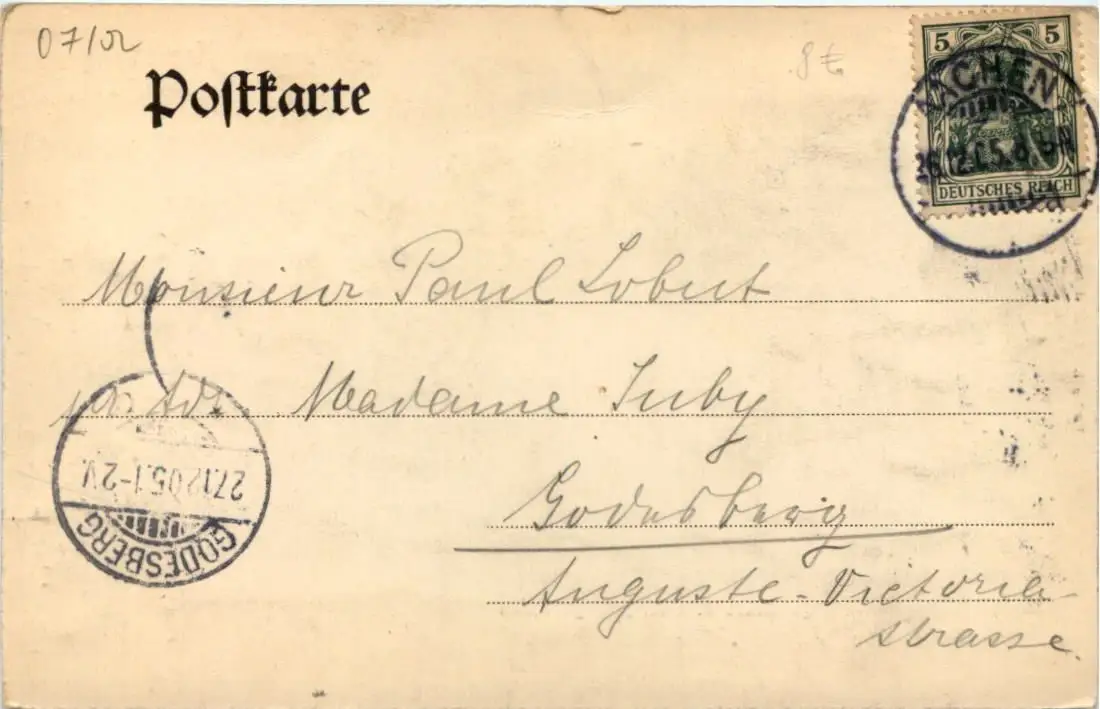 07/02
8 €
Postkarte
5 5
DEUTSCHES REICH
AACHEN
26.12.05.8
Monsieur Paul Lobut
Adr Madame Juby
Godesberg
Auguste-Victoria-
strasse.
27.12.05.1-2V.
GODESBERG